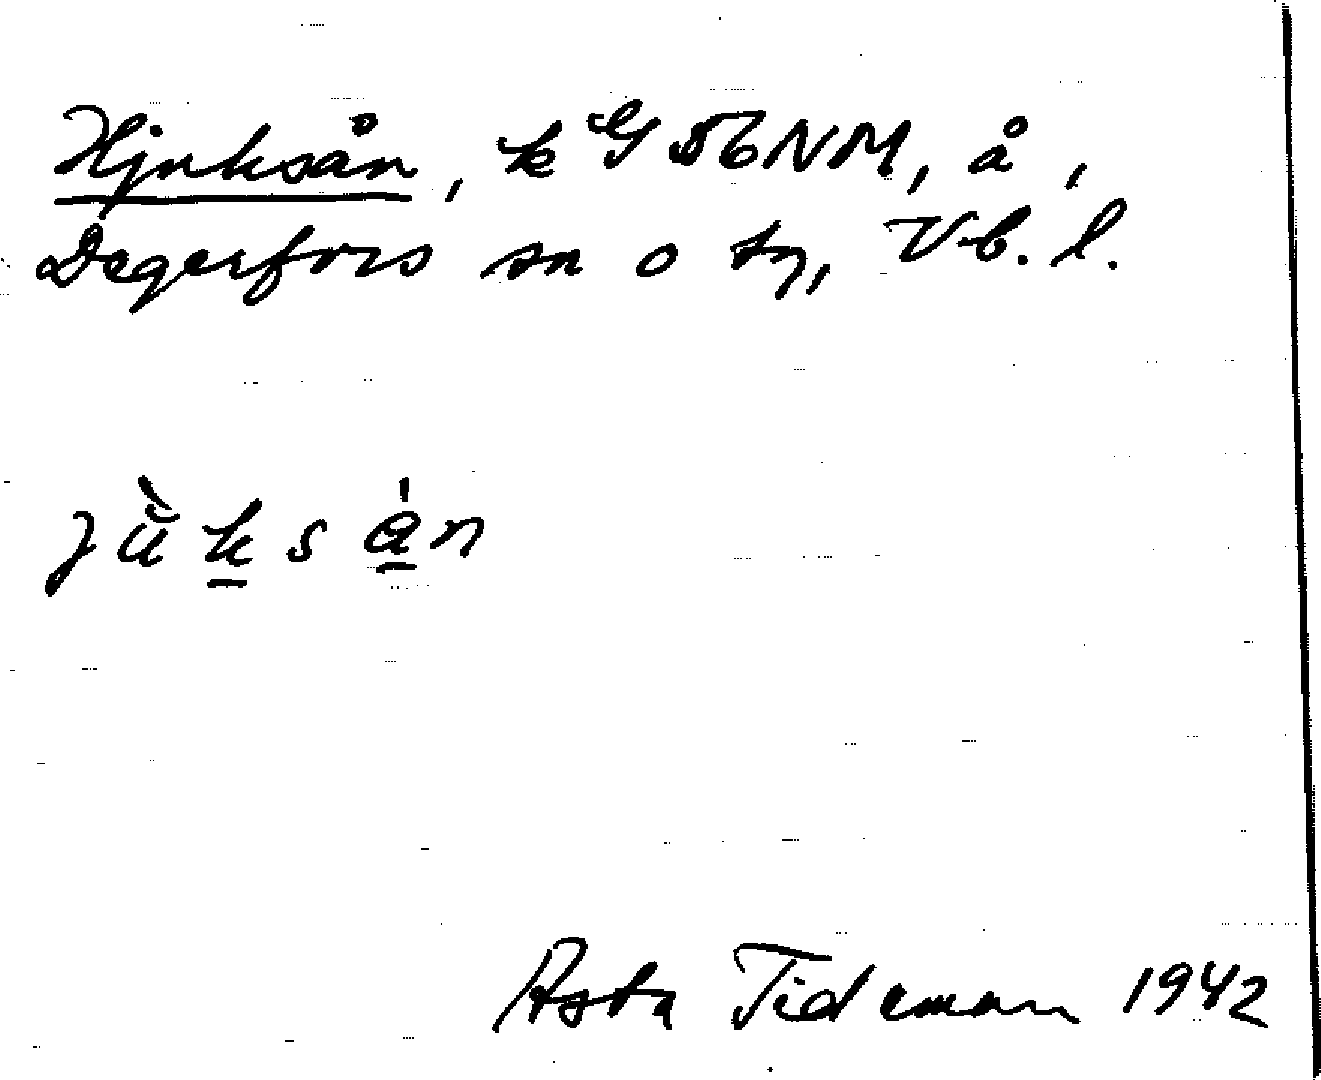 Hjuksån, k G 56 NM, å,
Degerfors sn o tg, Vb. l.
jùksa̱̍n
Asta Tideman 1942